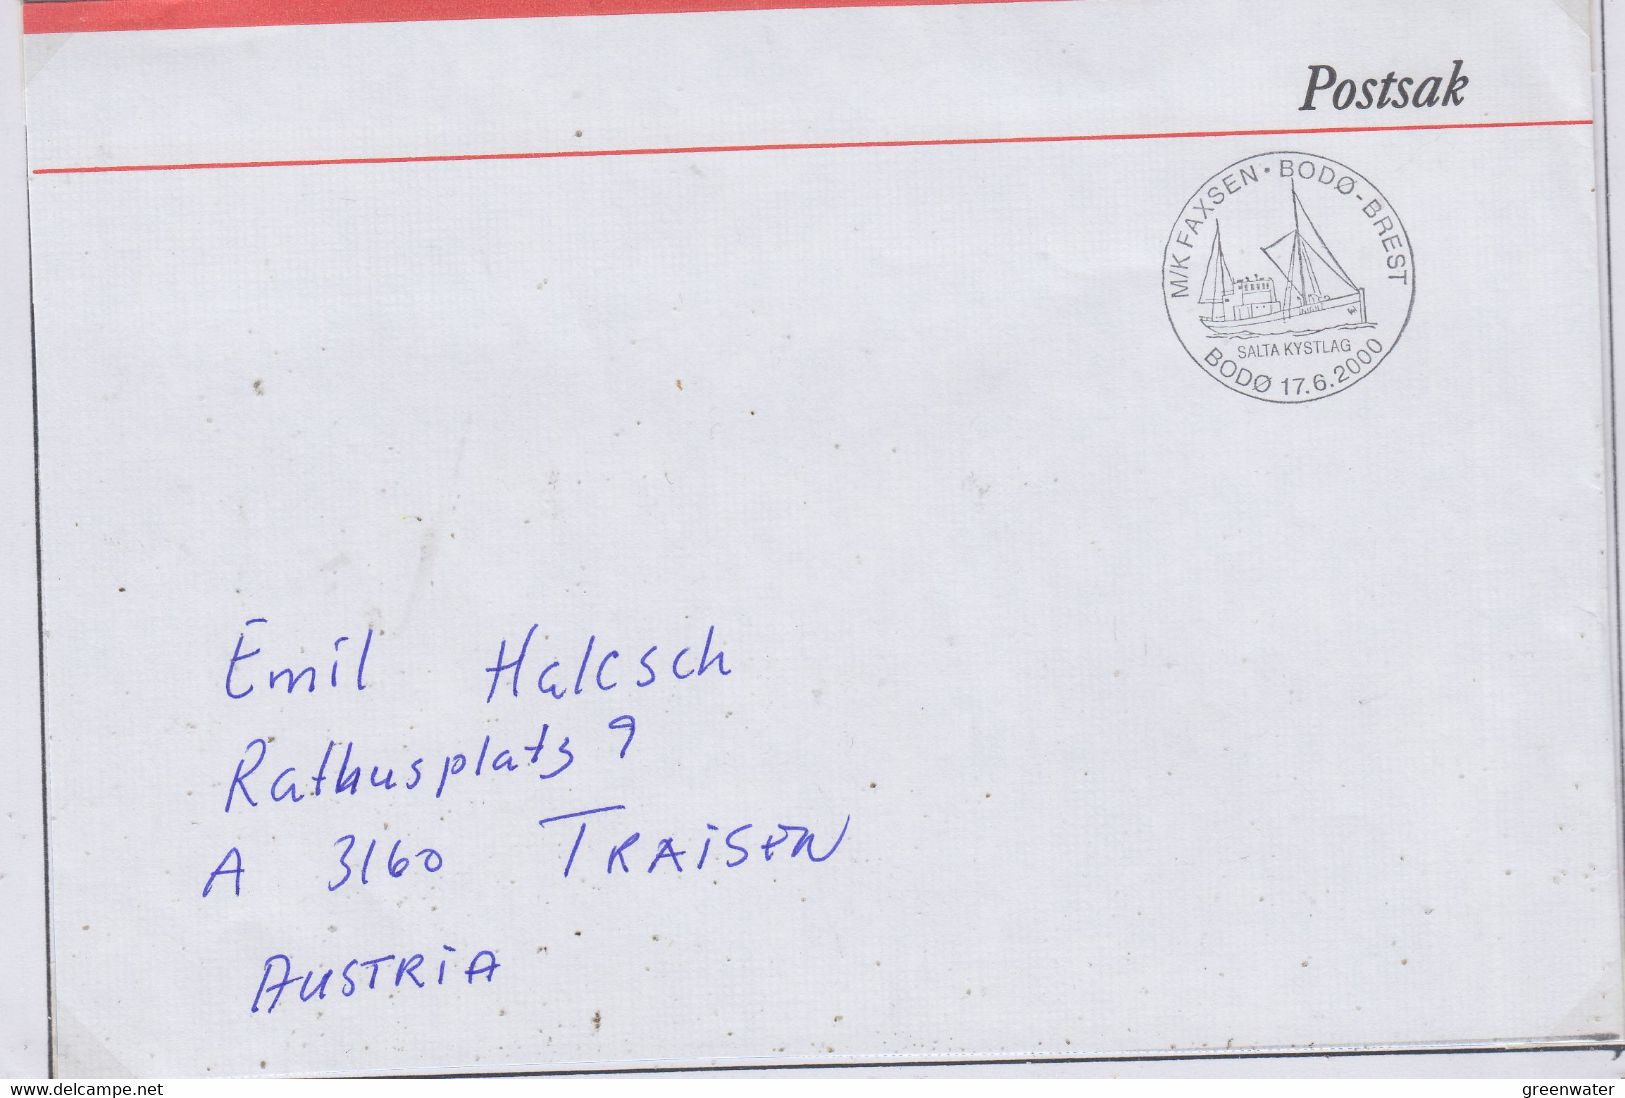 Postsak
M/K FAXSEN · BODØ-BREST
SALTA KYSTLAG
BODØ 17.6.2000
Emil Halcsch
Rathusplatz 9
A 3160 TRAiSEN
AUSTRiA
www.delcampe.net
greenwater